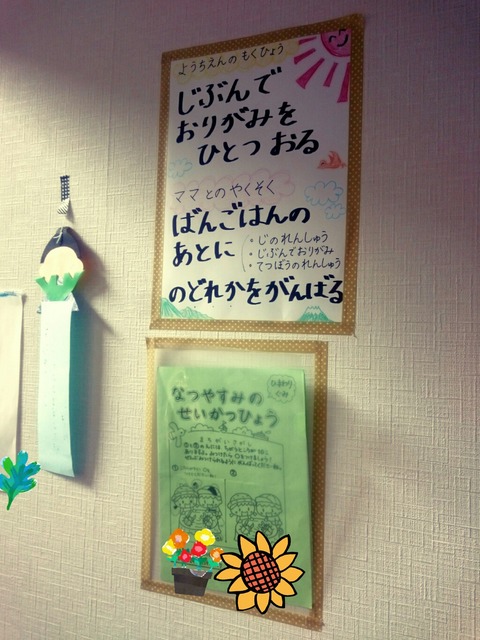 ようちえんの もくひょう
じぶんで
おりがみを
ひとつ おる
ママとのやくそく
ばんごはんの
あとに
・じのれんしゅう
・じぶんでおりがみ
・てつぼうのれんしゅう
のどれかをがんばる
なつやすみの
せいかつひょう
ひまわり
ぐみ
まちがいさがし